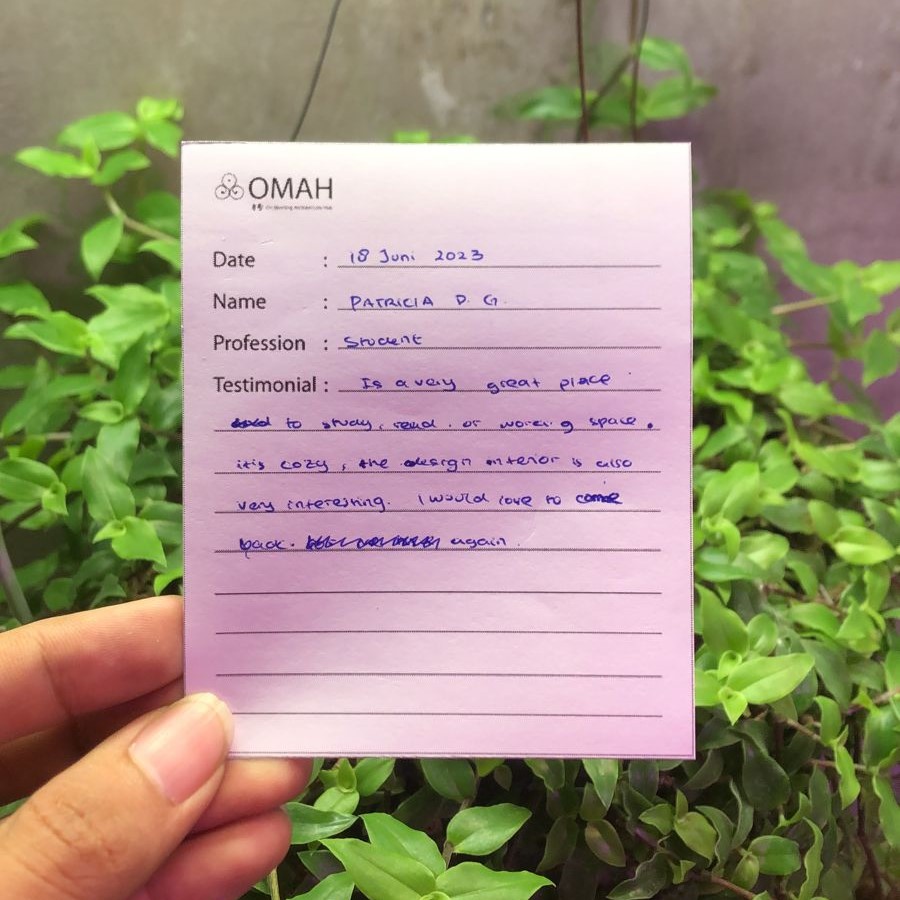 OMAH
Date : 18 Juni 2023
Name : PATRICIA D. G.
Profession : Student
Testimonial : Is a very great place
to study, read, or working space.
it's cozy, the design interior is also
very interesting. I would love to come
back. again.